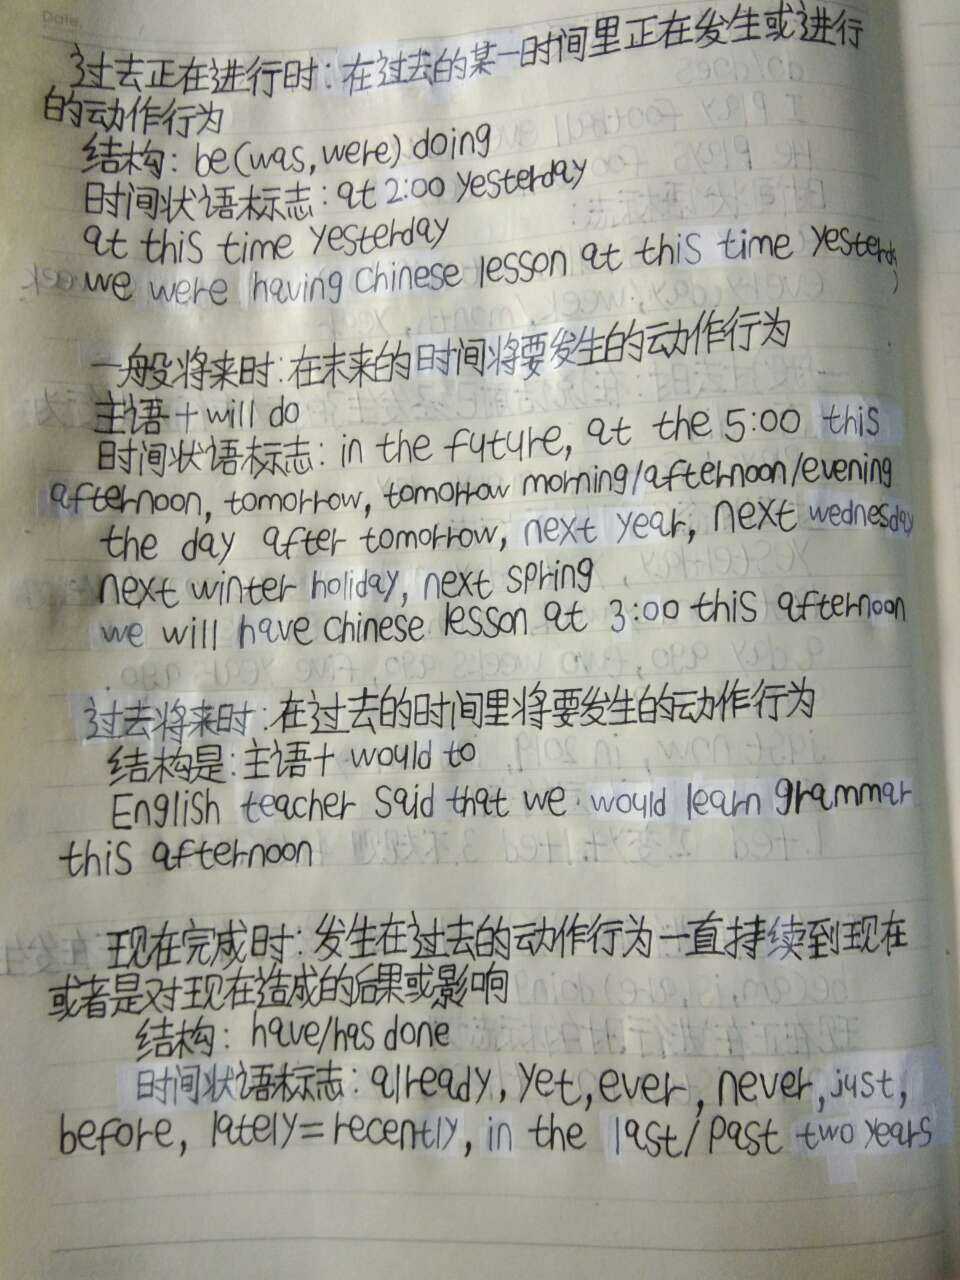 Date.
过去正在进行时:在过去的某一时间里正在发生或进行
的动作行为
结构:be(was,were)doing
时间状语标志:at 2:00 yesterday
at this time yesterday
we were having Chinese lesson at this time yesterday
一般将来时:在未来的时间将要发生的动作行为
主语+will do
时间状语标志:in the future, at the 5:00 this
afternoon, tomorrow, tomorrow morning/afternoon/evening
the day after tomorrow, next year, next wednesday
next winter holiday, next spring
we will have Chinese lesson at 3:00 this afternoon
过去将来时:在过去的时间里将要发生的动作行为
结构是:主语+would to
English teacher said that we would learn grammar
this afternoon
现在完成时:发生在过去的动作行为一直持续到现在
或者是对现在造成的后果或影响
结构:have/has done
时间状语标志:already, yet, ever, never, just,
before, lately=recently, in the last/past two years